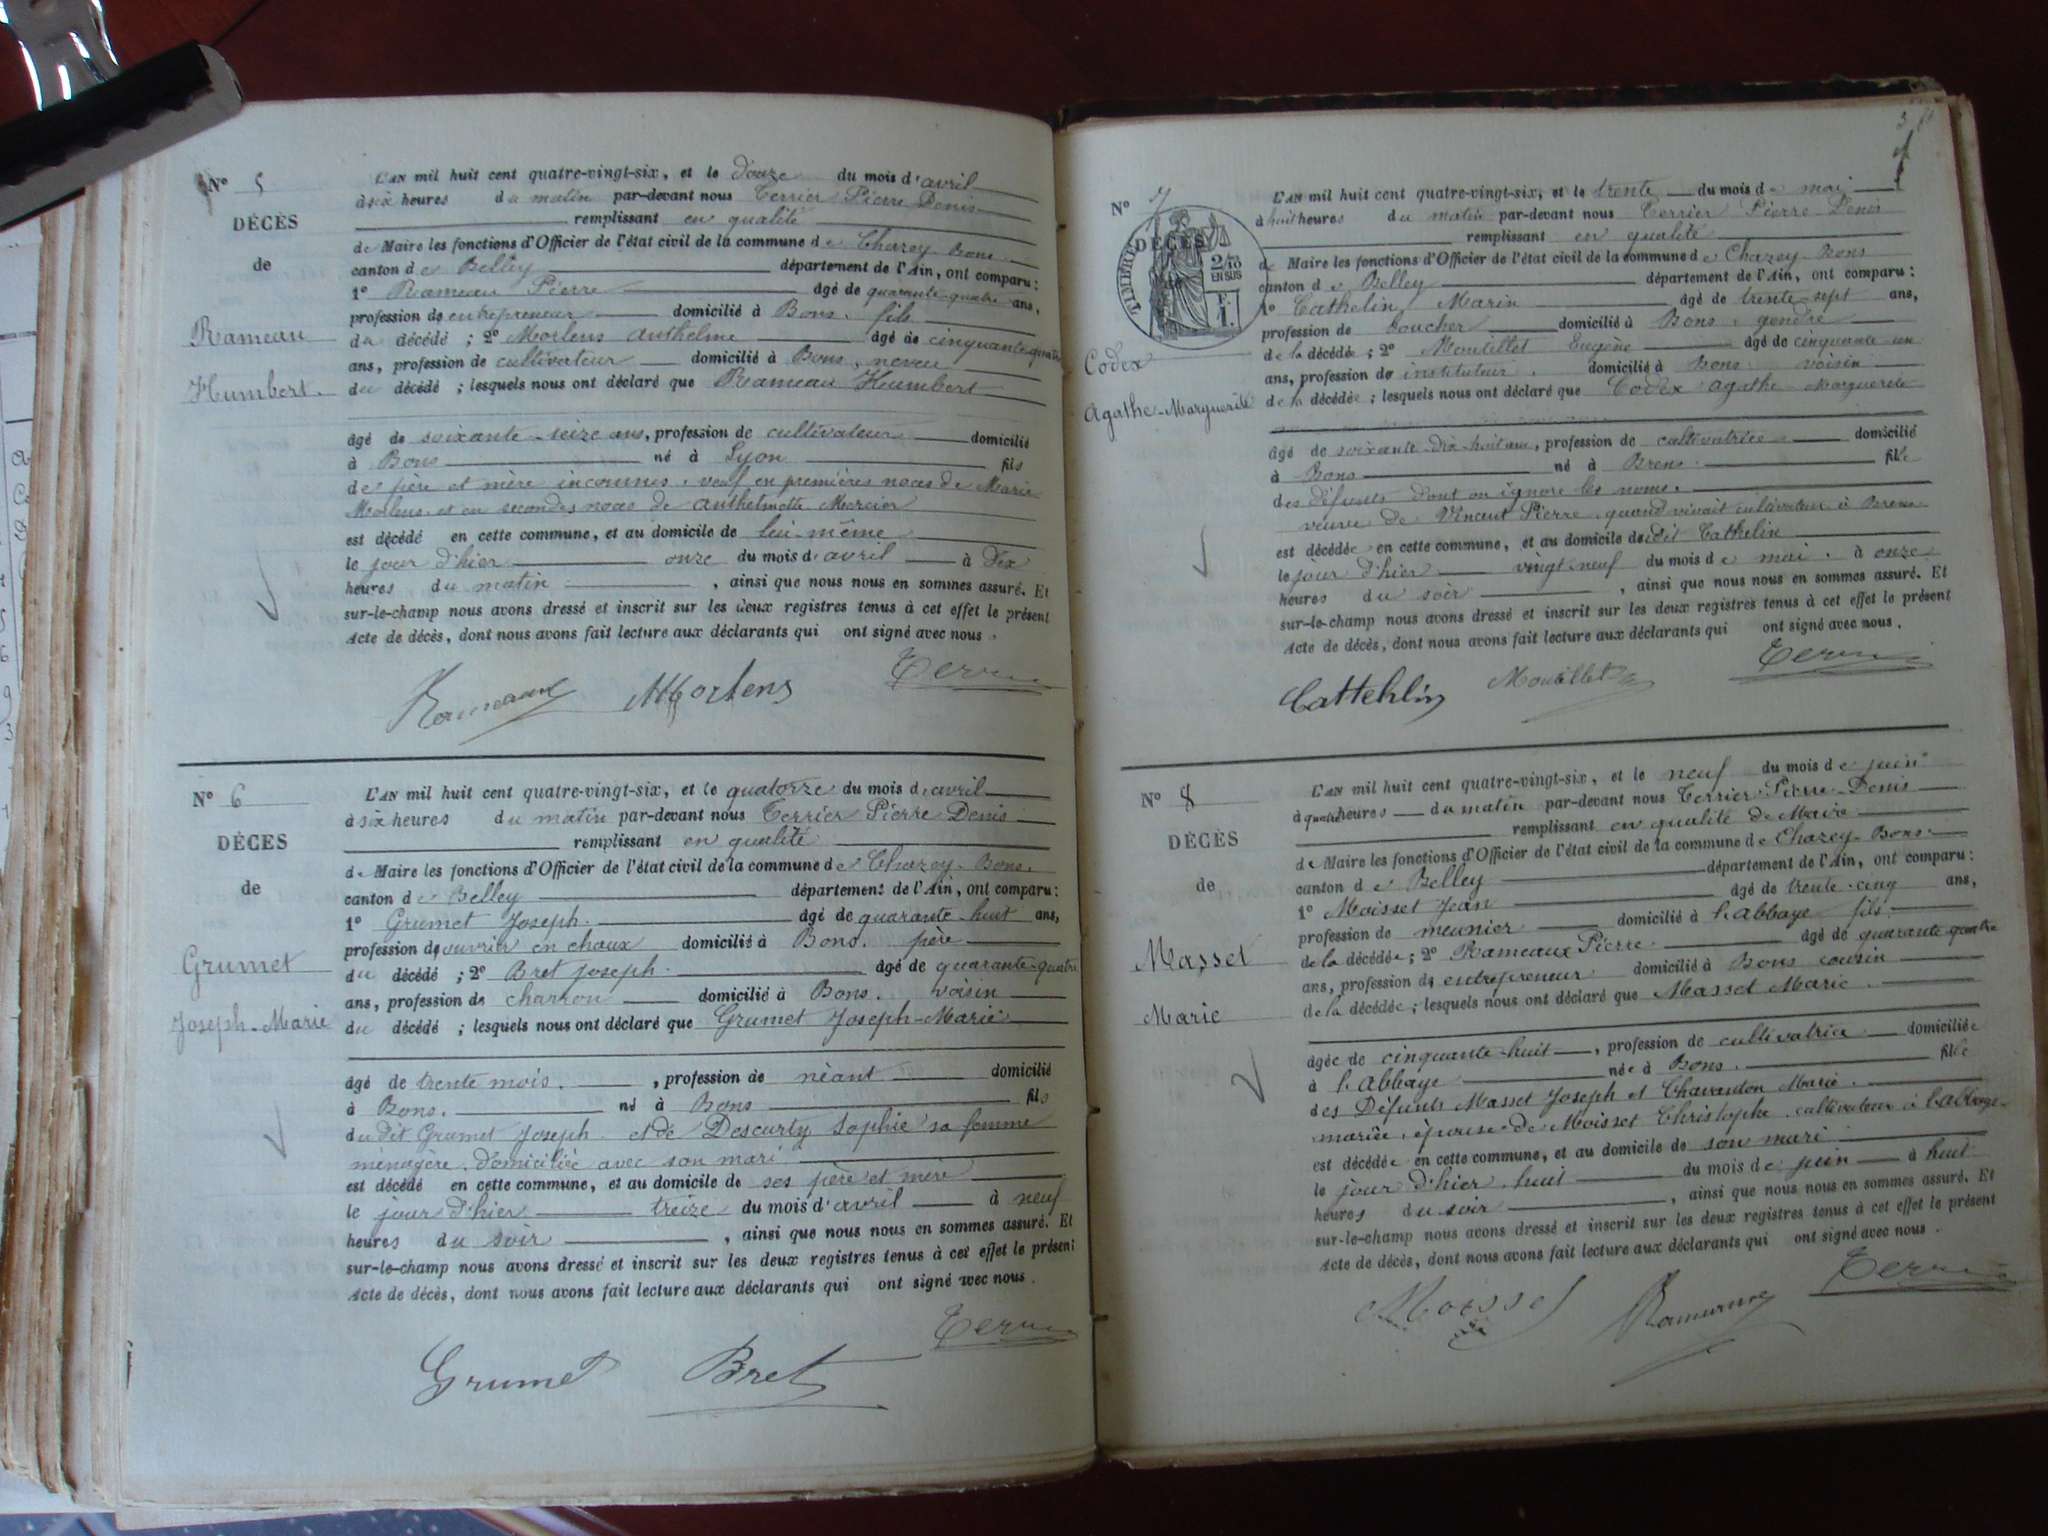 N° 5
DÉCÈS
de
Rameau
Humbert.
L'AN mil huit cent quatre-vingt-six, et le douze du mois d'avril
à six heures du matin par-devant nous Terrier Pierre Denis
remplissant en qualité
de Maire les fonctions d'Officier de l'état civil de la commune de Chazey-Bons
canton de Belley département de l'Ain, ont comparu :
1° Rameau Pierre âgé de quarante-quatre ans,
profession de entrepreneur domicilié à Bons. fils
du décédé ; 2° Mortens Anthelme âgé de cinquante-quatre
ans, profession de cultivateur domicilié à Bons, neveu
du décédé ; lesquels nous ont déclaré que Rameau Humbert
âgé de soixante-seize ans, profession de cultivateur domicilié
à Bons né à Lyon fils
de père et mère inconnus, veuf en premières noces de Marie
Mortens et en secondes noces de Anthelmette Mercier
est décédé en cette commune, et au domicile de lui-même
le jour d'hier onze du mois d'avril à dix
heures du matin , ainsi que nous nous en sommes assuré. Et
sur-le-champ nous avons dressé et inscrit sur les deux registres tenus à cet effet le présent
acte de décès, dont nous avons fait lecture aux déclarants qui ont signé avec nous.
Rameaux Mortens Terrier
N° 6
DÉCÈS
de
Grumet
Joseph-Marie
L'AN mil huit cent quatre-vingt-six, et le quatorze du mois d'avril
à six heures du matin par-devant nous Terrier Pierre Denis
remplissant en qualité
de Maire les fonctions d'Officier de l'état civil de la commune de Chazey-Bons.
canton de Belley département de l'Ain, ont comparu :
1° Grumet Joseph. âgé de quarante-huit ans,
profession de ouvrier en chaux domicilié à Bons. père
du décédé ; 2° Bret Joseph. âgé de quarante-quatre
ans, profession de charron domicilié à Bons. voisin
du décédé ; lesquels nous ont déclaré que Grumet Joseph-Marie
âgé de trente mois. , profession de néant domicilié
à Bons. né à Bons fils
du dit Grumet Joseph. et de Descurty Sophie sa femme
ménagère, domiciliée avec son mari
est décédé en cette commune, et au domicile de ses père et mère
le jour d'hier treize du mois d'avril à neuf
heures du soir , ainsi que nous nous en sommes assuré. Et
sur-le-champ nous avons dressé et inscrit sur les deux registres tenus à cet effet le présent
acte de décès, dont nous avons fait lecture aux déclarants qui ont signé avec nous.
Grumet Bret Terrier
N° 7
DÉCÈS
2/10
EN SUS
Codex
Agathe-Marguerite
L'AN mil huit cent quatre-vingt-six, et le trente du mois de mai
à huit heures du matin par-devant nous Terrier Pierre-Denis
remplissant en qualité
de Maire les fonctions d'Officier de l'état civil de la commune de Chazey-Bons
canton de Belley département de l'Ain, ont comparu :
1° Cathelin Marin âgé de trente-sept ans,
profession de boucher domicilié à Bons. gendre
de la décédée ; 2° Moutillet Eugène âgé de cinquante-un
ans, profession de instituteur. domicilié à Bons voisin
de la décédée ; lesquels nous ont déclaré que Codex Agathe-Marguerite
âgé de soixante-dix-huit ans, profession de cultivatrice domicilié
à Bons né à Brens fille
des défunts dont on ignore les noms.
veuve de Vincent Pierre, quand vivait cultivateur à Brens
est décédée en cette commune, et au domicile de dit Cathelin
le jour d'hier vingt-neuf du mois de mai. à onze
heures du soir , ainsi que nous nous en sommes assuré. Et
sur-le-champ nous avons dressé et inscrit sur les deux registres tenus à cet effet le présent
acte de décès, dont nous avons fait lecture aux déclarants qui ont signé avec nous.
Cattehlin Moutillet Terrier
N° 8
DÉCÈS
de
Masset
Marie
L'AN mil huit cent quatre-vingt-six, et le neuf du mois de juin
à quatre heures du matin par-devant nous Terrier-Pierre-Denis
remplissant en qualité de Maire
de Maire les fonctions d'Officier de l'état civil de la commune de Chazey-Bons.
canton de Belley département de l'Ain, ont comparu :
1° Moisset Jean âgé de trente-cinq ans,
profession de meunier domicilié à l'Abbaye fils.
de la décédée ; 2° Rameaux Pierre. âgé de quarante quatre
ans, profession de entrepreneur domicilié à Bons cousin
de la décédée ; lesquels nous ont déclaré que Masset Marie.
âgée de cinquante-huit , profession de cultivatrice domiciliée
à l'Abbaye née à Bons. fille
des Défunts Masset Joseph et Chavanton Marie.
mariée, épouse de Moisset Christophe, cultivateur à l'abbaye-
est décédée en cette commune, et au domicile de son mari
le jour d'hier huit du mois de juin à huit
heures du soir , ainsi que nous nous en sommes assuré. Et
sur-le-champ nous avons dressé et inscrit sur les deux registres tenus à cet effet le présent
acte de décès, dont nous avons fait lecture aux déclarants qui ont signé avec nous.
Moisset Rameaux Terrier